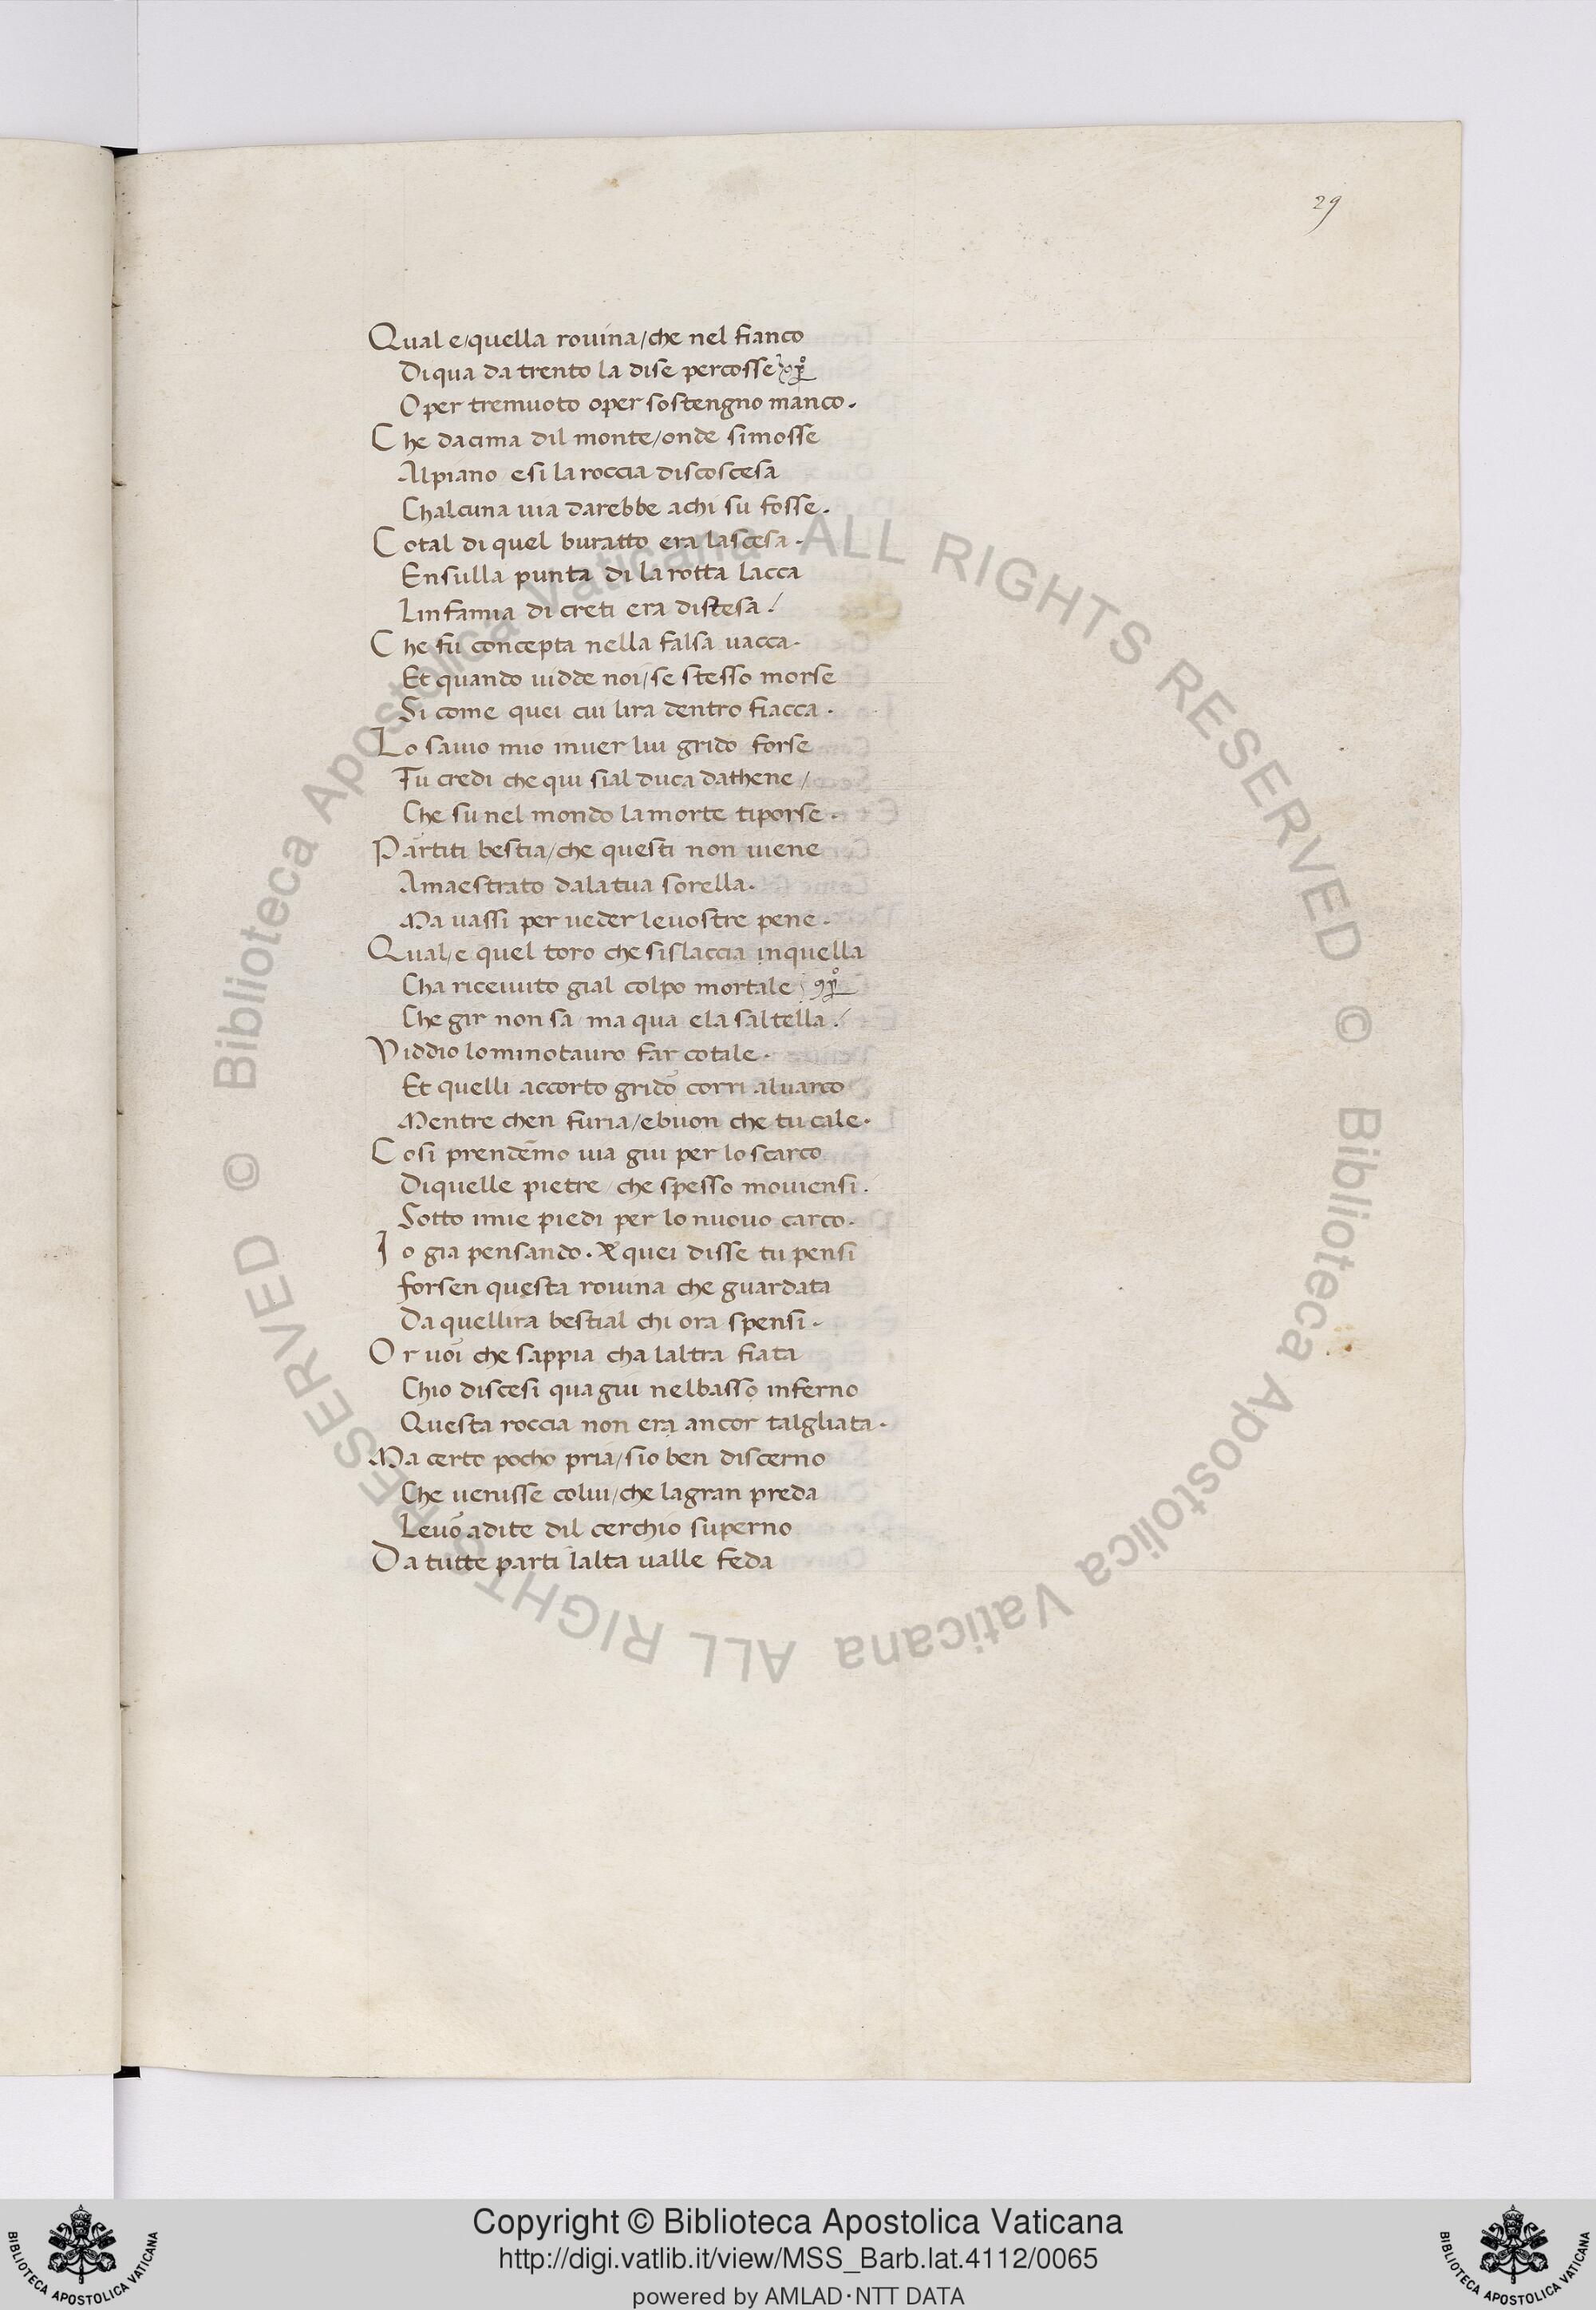 29
Qual e/quella rouina/che nel fianco
Diqua da trento la dise percosse
Oper tremuoto oper sostengno manco.
Che dacima dil monte/onde simosse
Alpiano esi la roccia discoscesa
Chalcuna uia darebbe achi su fosse.
Cotal di quel buratto era lascesa.
Ensulla punta di la rotta lacca
Linfamia di creti era distesa/
Che fu concepta nella falsa uacca.
Et quando uidde noi/se stesso morse
Si come quei cui lira dentro fiacca.
Lo sauio mio inuer lui grido forse
Tu credi che qui sial duca dathene/
Che su nel mondo la morte tiporse.
Partiti bestia/che questi non uiene
Amaestrato dalatua sorella.
Ma uassi per ueder leuostre pene.
Qual/e quel toro che sislaccia inquella
Cha riceuuto gial colpo mortale
Che gir non sa ma qua ela saltella/
Viddio lominotauro far cotale.
Et quelli accorto grido corri aluarco
Mentre chen furia/ebuon che tu cale.
Cosi prendemo uia giu per lo scarco
Diquelle pietre/che spesso mouiensi.
Sotto imie piedi per lo nuouo carco.
Io gia pensando. & quei disse tu pensi
forsen questa rouina che guardata
Da quellira bestial chi ora spensi.
Or uoi che sappia cha laltra fiata
Chio discesi qua giu nelbasso inferno
Questa roccia non era ancor talgliata.
Ma certo pocho pria/sio ben discerno
Che uenisse colui/che lagran preda
Leuo adite dil cerchio superno
Da tutte parti lalta ualle feda
© Biblioteca Apostolica Vaticana ALL RIGHTS RESERVED © Biblioteca Apostolica Vaticana ALL RIGHTS RESERVED
Copyright © Biblioteca Apostolica Vaticana
http://digi.vatlib.it/view/MSS_Barb.lat.4112/0065
powered by AMLAD·NTT DATA
BIBLIOTECA APOSTOLICA VATICANA
BIBLIOTECA APOSTOLICA VATICANA